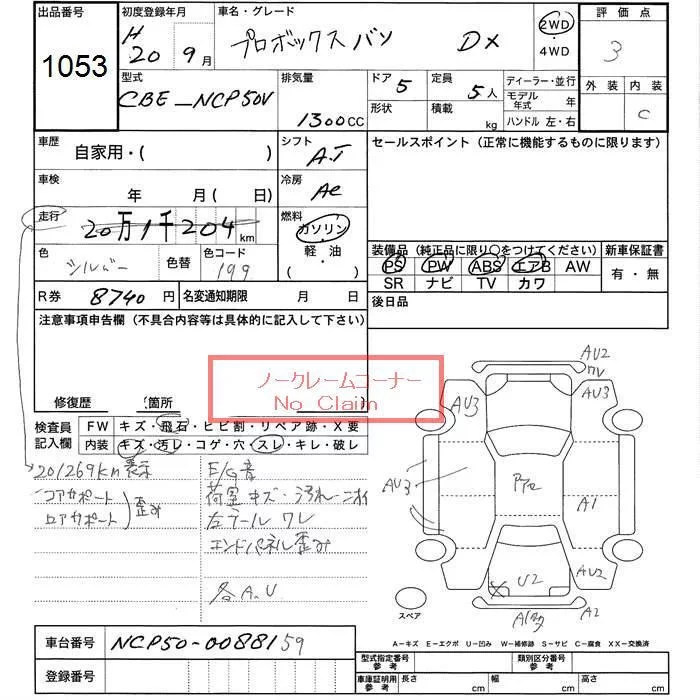 出品番号
1053
初度登録年月
H 20 年 9 月
車名・グレード
プロボックスバン DX
2WD
・
4WD
評価点
3
外装
内装
C
型式
CBE-NCP50V
排気量
1300 CC
ドア 5
形状
定員 5人
積載 kg
ディーラー・並行
モデル年式 年
ハンドル 左・右
車歴
自家用・( )
シフト
A.T
セールスポイント (正常に機能するものに限ります)
車検
年 月 ( 日)
冷房
AC
走行
20万1千204 km
燃料
ガソリン
軽・油
( )
色
シルバー
色替
色コード
199
装備品 (純正品に限り○をつけてください)
PS PW ABS エアB AW
SR ナビ TV カワ
新車保証書
有・無
R券 8740 円
名変通知期限 月 日
後日品
注意事項申告欄 (不具合内容等は具体的に記入して下さい)
ノークレームコーナー
No Claim
修復歴 (箇所 )
検査員
記入欄
FW キズ・飛石・ヒビ割・リペア跡・X要
内装 キズ・汚レ・コゲ・穴・スレ・キレ・破レ
201269km表示
コアサポート
ロアサポート
歪み
E/G音
荷室キズ・汚れ・ニオイ
左テールワレ
エンドパネル歪み
各A.U
AU2
AU3
AU3
AU3
A1
AU2
U2
A2
スペア
A-キズ E-エクボ U-凹み W-補修跡 S-サビ C-腐食 XX-交換済
車台番号 NCP50-0088159
登録番号
型式指定番号
参考
類別区分番号
参考
車庫証明用
参考
長さ cm
幅 cm
高さ cm